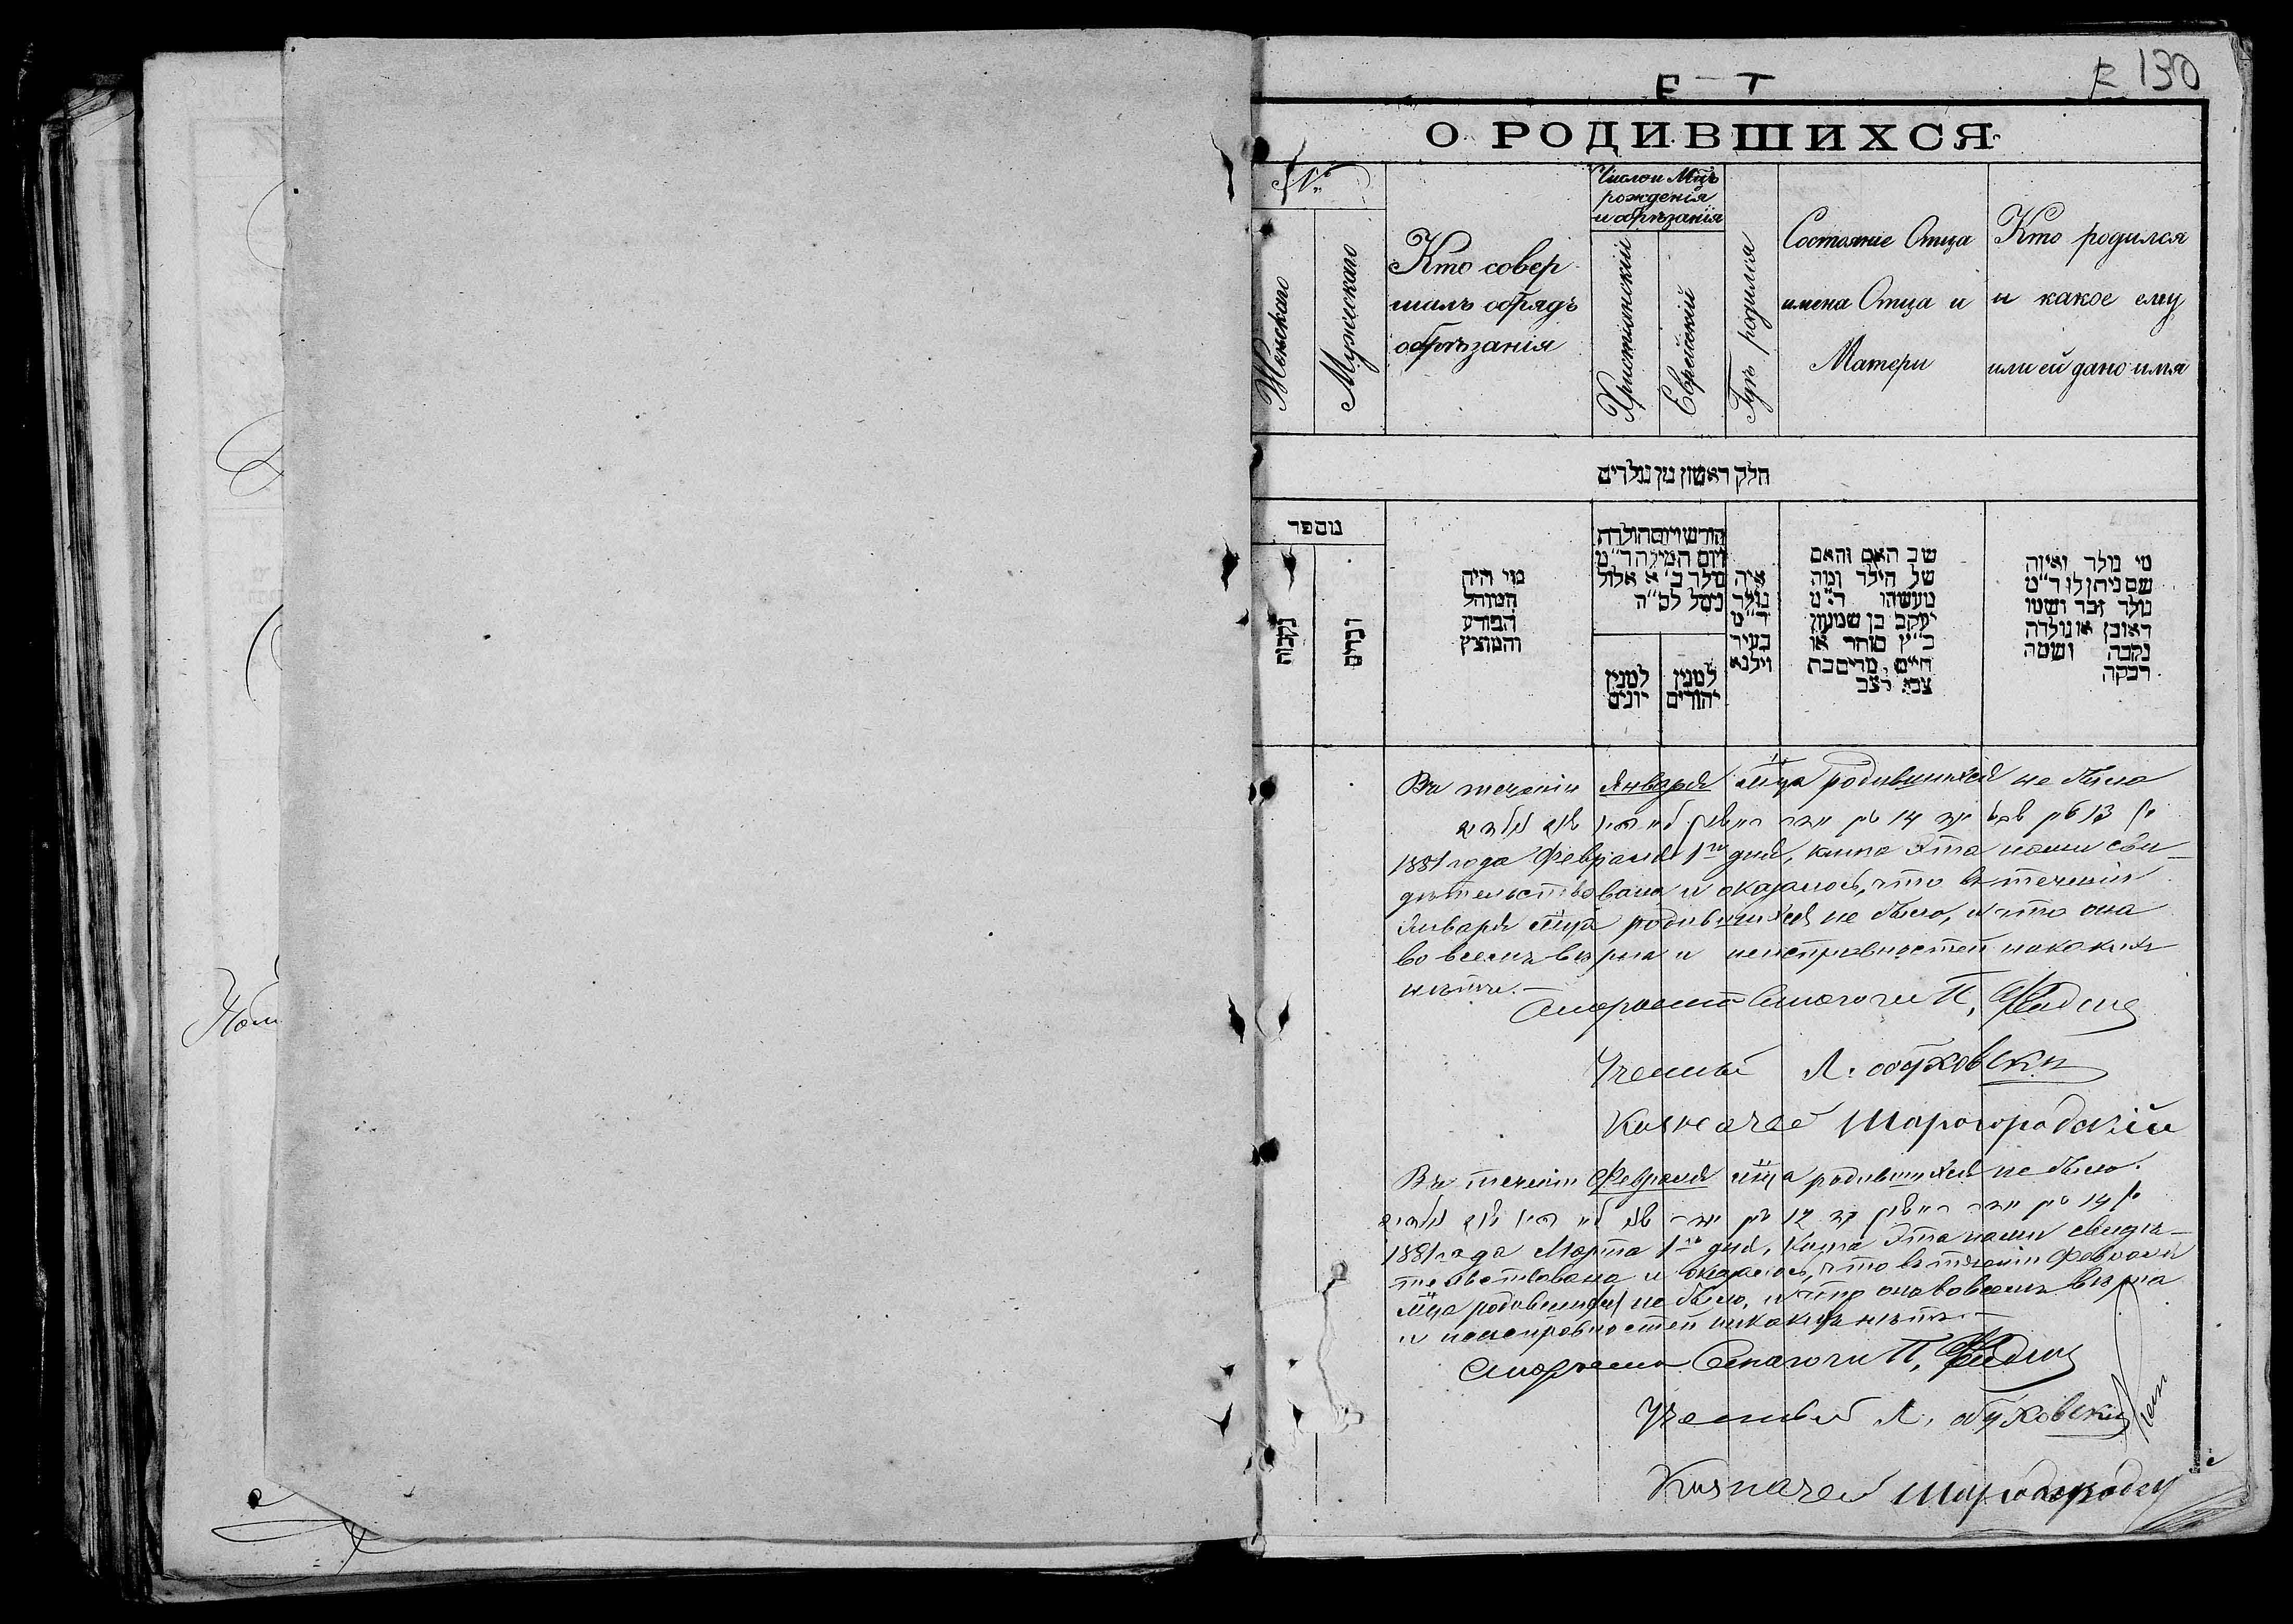 E – T
130
О РОДИВШИХСЯ
№
Женскаго
Мужескаго
Кто совер
шалъ обрядъ
обрѣзанія
Число и Мцъ
рожденія
и обрѣзанія
Христіанскій
Еврейскій
Гдѣ родился
Состояніе Отца
имена Отца и
Матери
Кто родился
и какое ему
или ей дано имя
חלק ראשון מן נולדים
מספר
נקבות
זכרים
מי היה
המוהל
הפורע
והמוצץ
חודש ויום הולדת
ויום המילה ד״מ
נולד ב׳ א אלול
נימל לס״ה
למנין
יונים
למנין
יהודים
איה
נולד
ד״מ
בעיר
וילנא
שב האם והאם
של הילד ומה
מעשהו ד״מ
יעקב בן שמעון
כ״ץ סוחר או
חיים, מרים בת
צבי רצב
מי נולד ואיזה
שם ניתן לו ד״מ
נולד זכר ושמו
ראובן או נולדה
נקבה ושמה
רבקה
Въ теченіи Января мца родившихся не было
1881 года Февраля 1го дня, книга эта нами сви
дѣтельствована и оказалось, что въ теченіи
Января мца родившихся не было, и что она
во всемъ вѣрна и неисправностей никакихъ
нѣтъ. —
Староста Синагоги П.
Ученый Л. Обуховски
Казначей Шарогородскій
Въ теченіи Февраля мца родившихся не было.
1881 года Марта 1го дня, Книга эта нами свидѣ
тельствована и оказалось, что въ теченіи Февраля
мца родившихся не было, и что она во всемъ вѣрна
и неисправностей никакихъ нѣтъ. —
Староста Синагоги П.
Ученый Л. Обуховски
Казначей